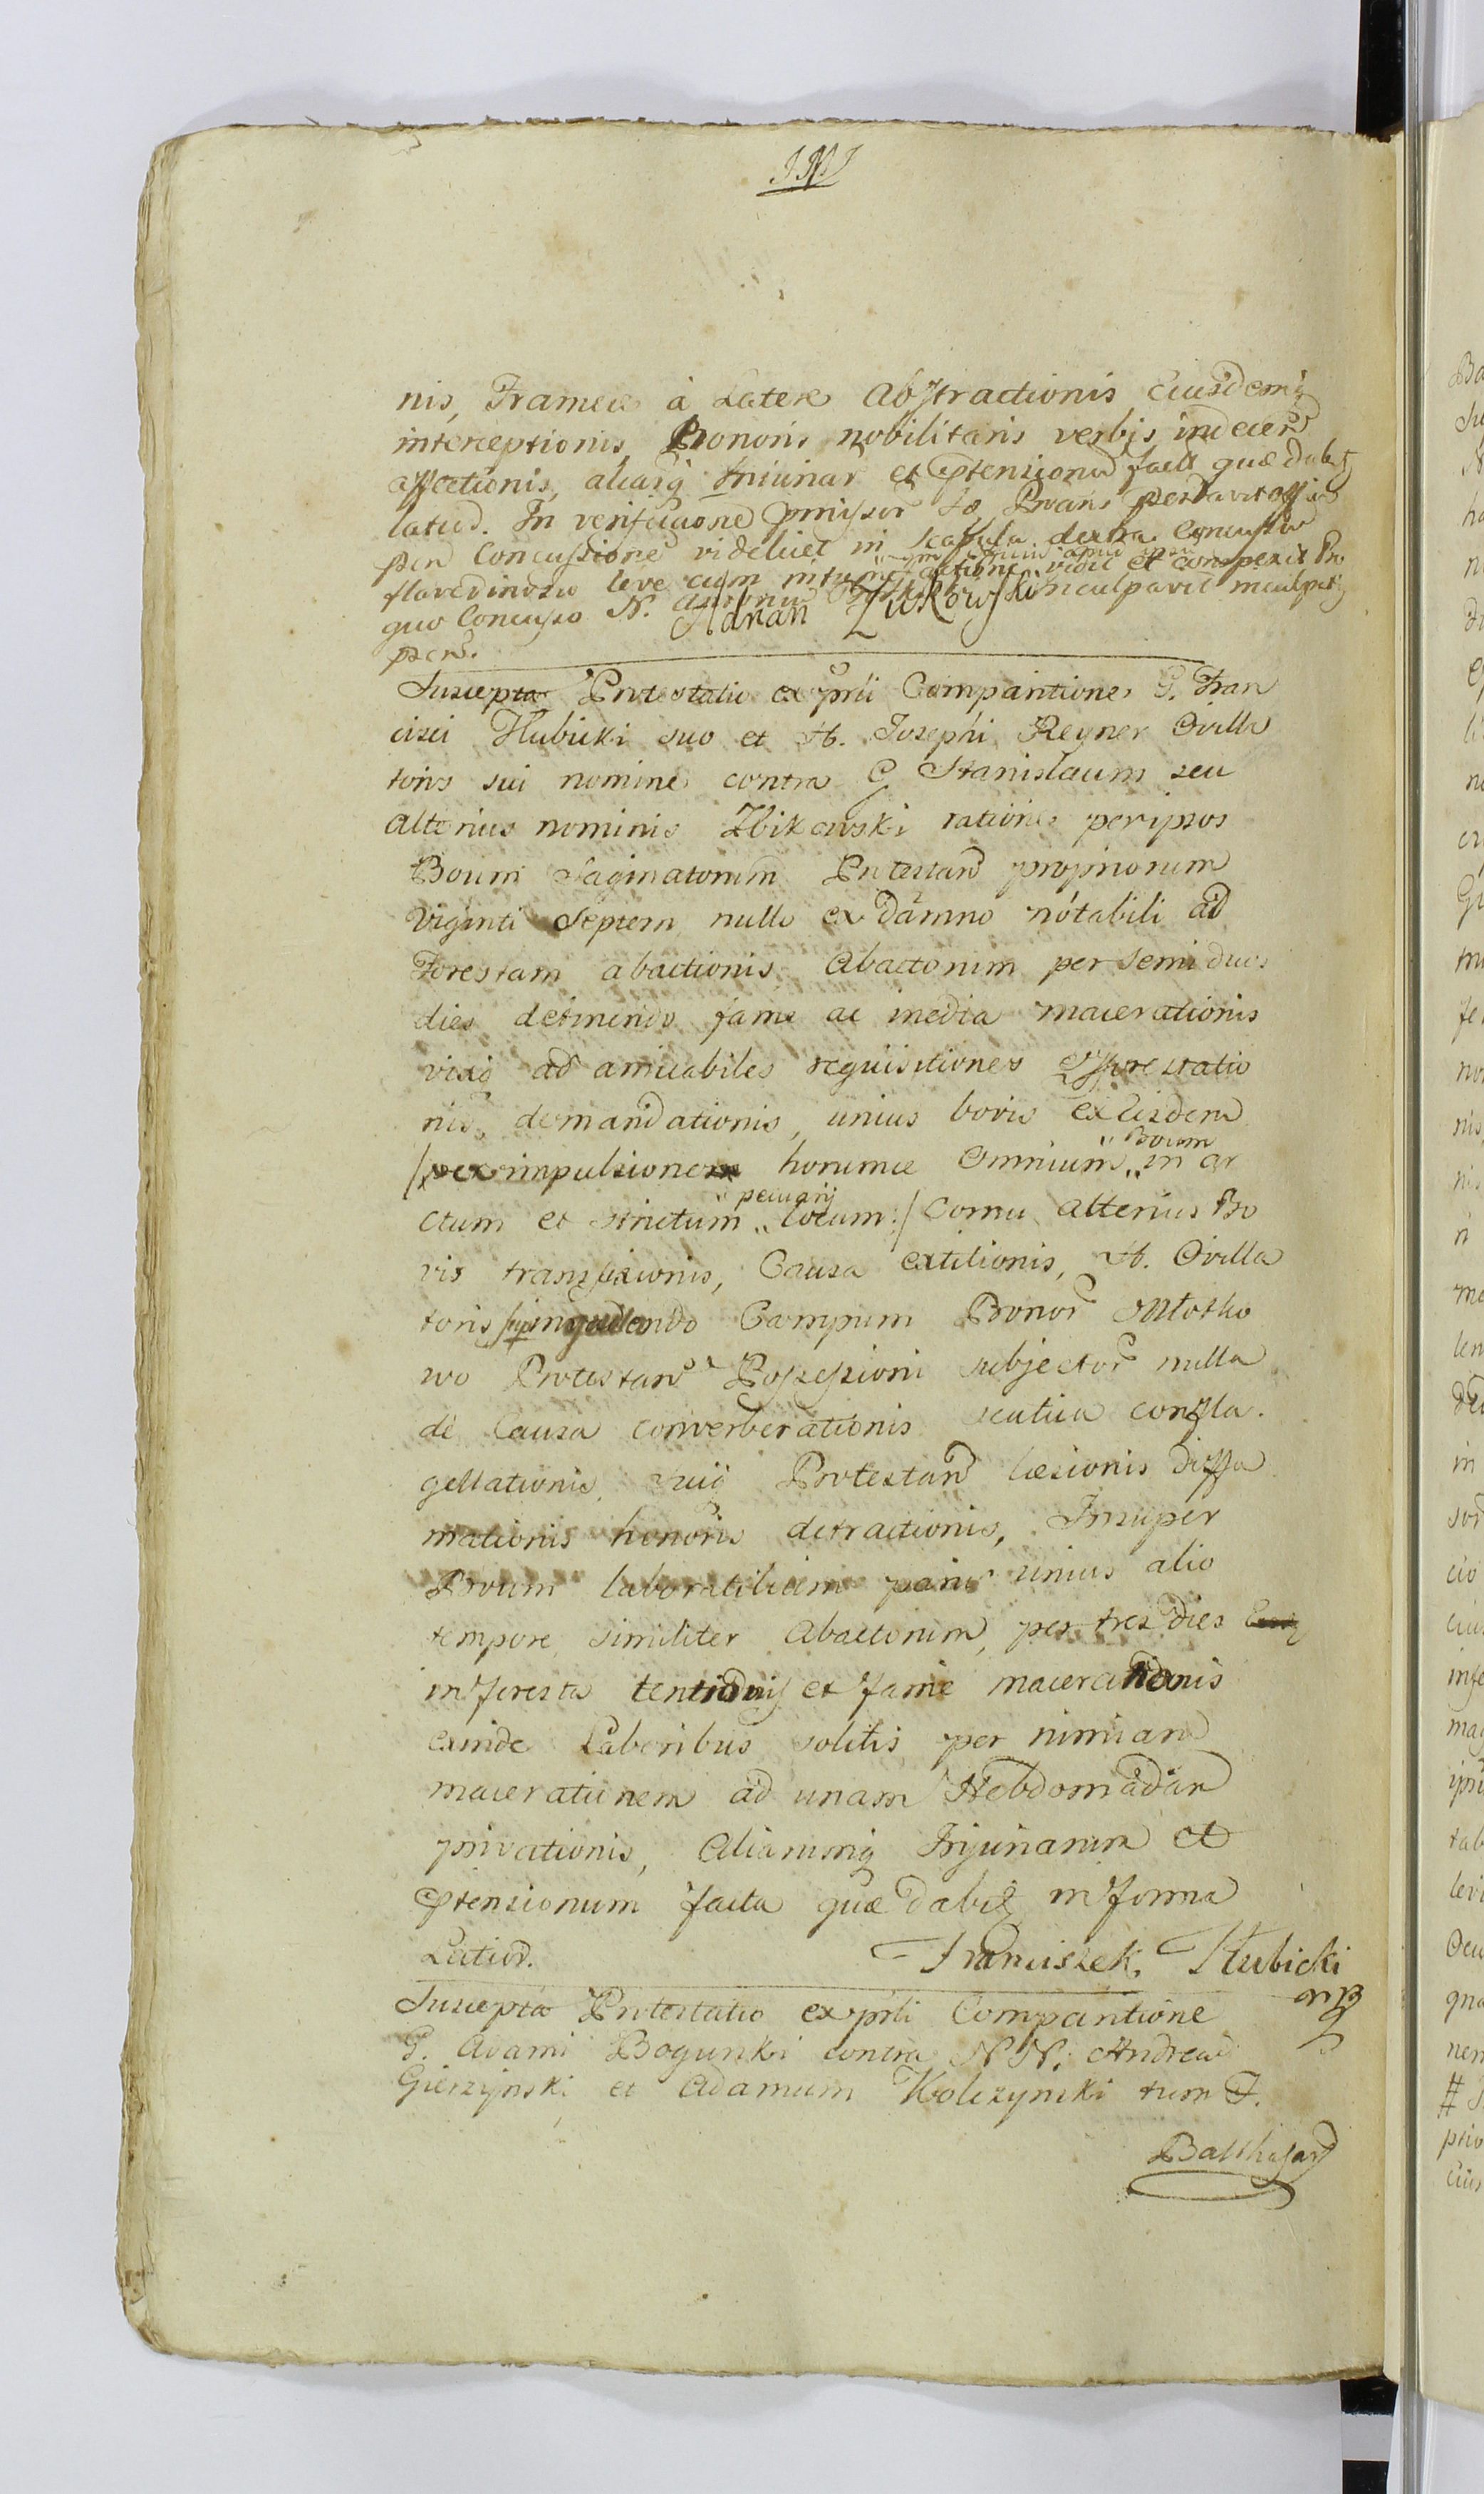 nis, Frameæ à Latere Abstractionis Eiusdemq
interceptionis, Honoris nobilitaris verbis indecen
affectionis, aliarq Iniuriar et Ptensionu facta quæ dabit
latius. In verificatione pmissor Is Protans
per Concussione videlicet in scapula dextra concussio
flavedinosu leve cum vidit et conspexit Pro
quo Concusso N. inculpavit inculpatq
pers.
Adrian Zukowski
Suscepta Protestatio ex prli Comparitione G. Fran
cisci Hubicki suo et H. Josephi Reyner Ovilla
toris sui nomine contra G Stanislaum seu
alterius nominis Zbikowski ratione per ipsos
Boum Saginatorum Protestan propriorum
viginti Septem nullo ex damno nótabili ad
Forestam abactionis, Abactorum per semi duos
dies detinendo fame ac inedia macerationis
vixq ad amicabiles requisitiones
nis, demandationis, unius bovis ex eisdem
/per impulsionem horumce Omnium " Boum " in ar
ctum et strictum " pecuarij " locum:/ Cornu alterius Bo
vis transfixionis, Causa extitionis, H. Ovilla
toris Campum Bonor Młotko
wo Protestan Possessioni subjector nulla
de Causa converberationis scutica confla.
gellationis, suiq Protestan læsionis diffa
mationis honoris detractionis, Insuper
Boum laboratilium paris unius alio
tempore similiter Abactorum, per tres dies
in foresta et fame macerationis
exinde Laboribus solitis per nimiam
macerationem ad unam Hebdomadam
privationis, Aliarumq Injuriarum et
Ptensionum facta quæ dabit in forma
Latior.
Franciszek Hubicki
mp
Suscepta Protestatio ex prli Comparitione
G. Adami Bogunski contra NN. Andream
Gierzynski et Adamum Kolczynski tum F.
Balthasar